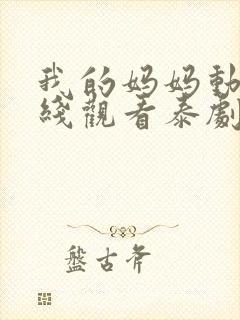 我的妈妈動
綫觀看泰劇
盤古斧